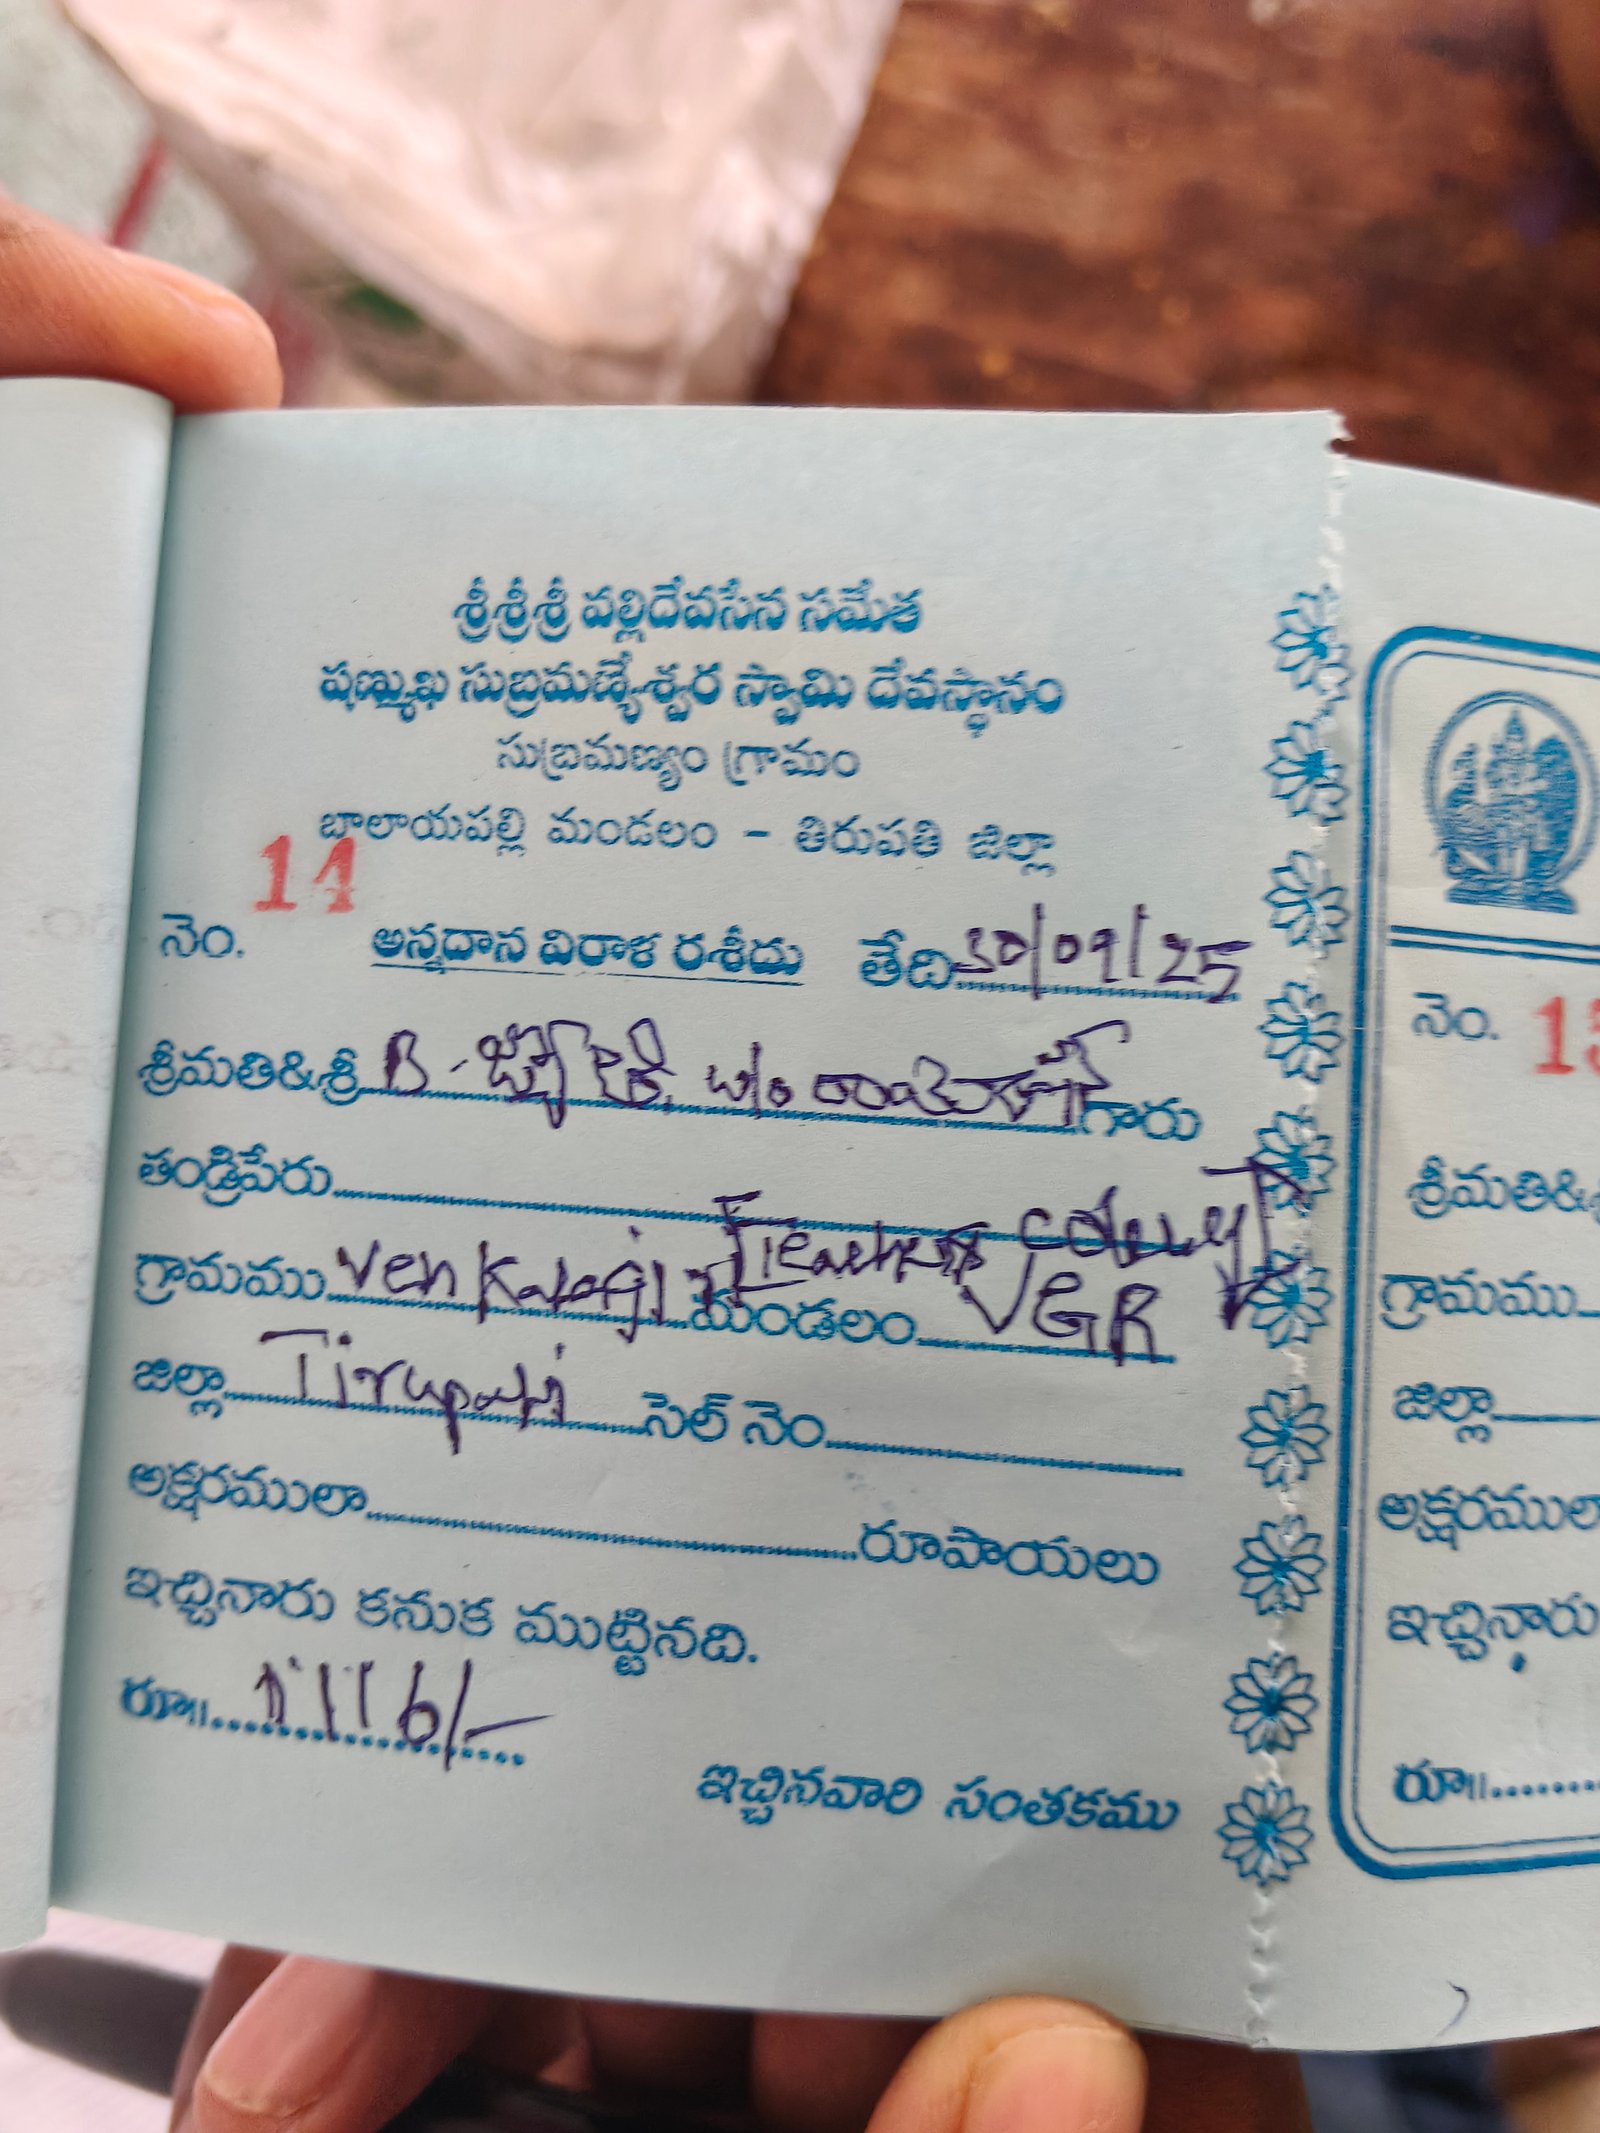 శ్రీశ్రీశ్రీ వల్లిదేవసేన సమేత
షణ్ముఖ సుబ్రమణ్యేశ్వర స్వామి దేవస్థానం
సుబ్రమణ్యం గ్రామం
బాలాయపల్లి మండలం - తిరుపతి జిల్లా
నెం. 14 అన్నదాన విరాళ రశీదు తేది 30/09/25
శ్రీమతి&శ్రీ B. జ్యోతి, w/o గారు
తండ్రిపేరు
Teachers colony
గ్రామము Venkatagiri మండలం VGR
జిల్లా Tirupati సెల్ నెం.
అక్షరములా రూపాయలు
ఇచ్చినారు కనుక ముట్టినది.
రూ॥ 1116/-
ఇచ్చినవారి సంతకము
నెం.
శ్రీమతి&
గ్రామము
జిల్లా
అక్షరములా
ఇచ్చినారు
రూ॥